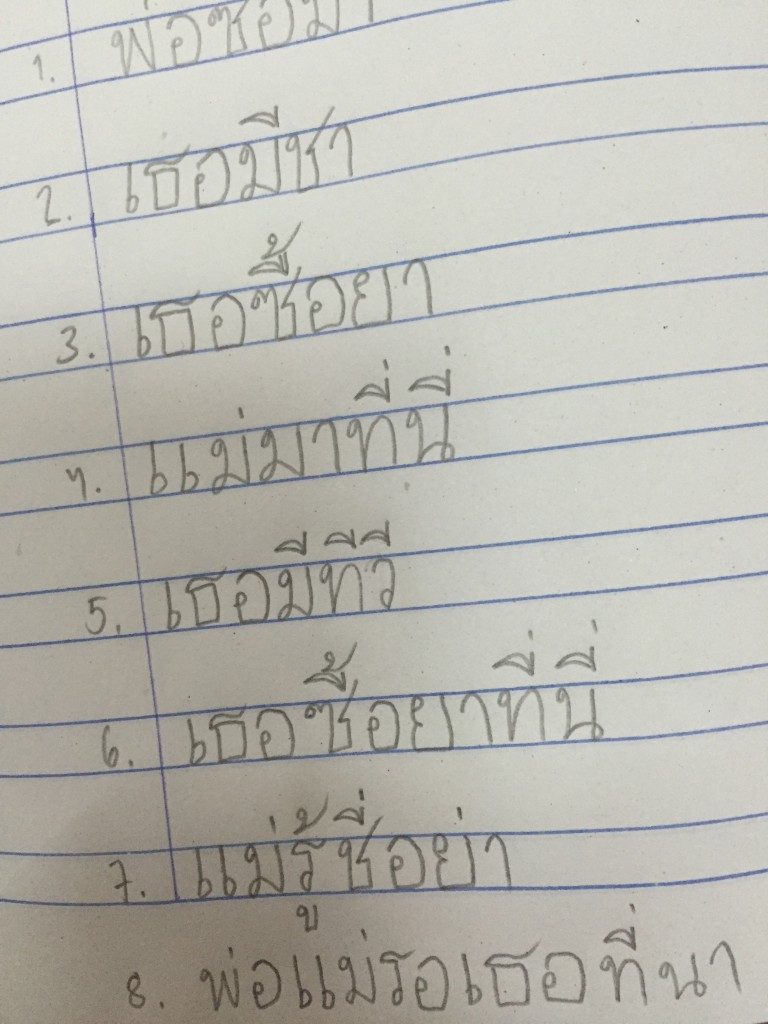 1.
2. เธอมีชา
3. เธอซื้อยา
4. แม่มาที่นี่
5. เธอมีทีวี
6. เธอซื้อยาที่นี่
7. แม่รู้ชื่อย่า
8. พ่อแม่รอเธอที่นา